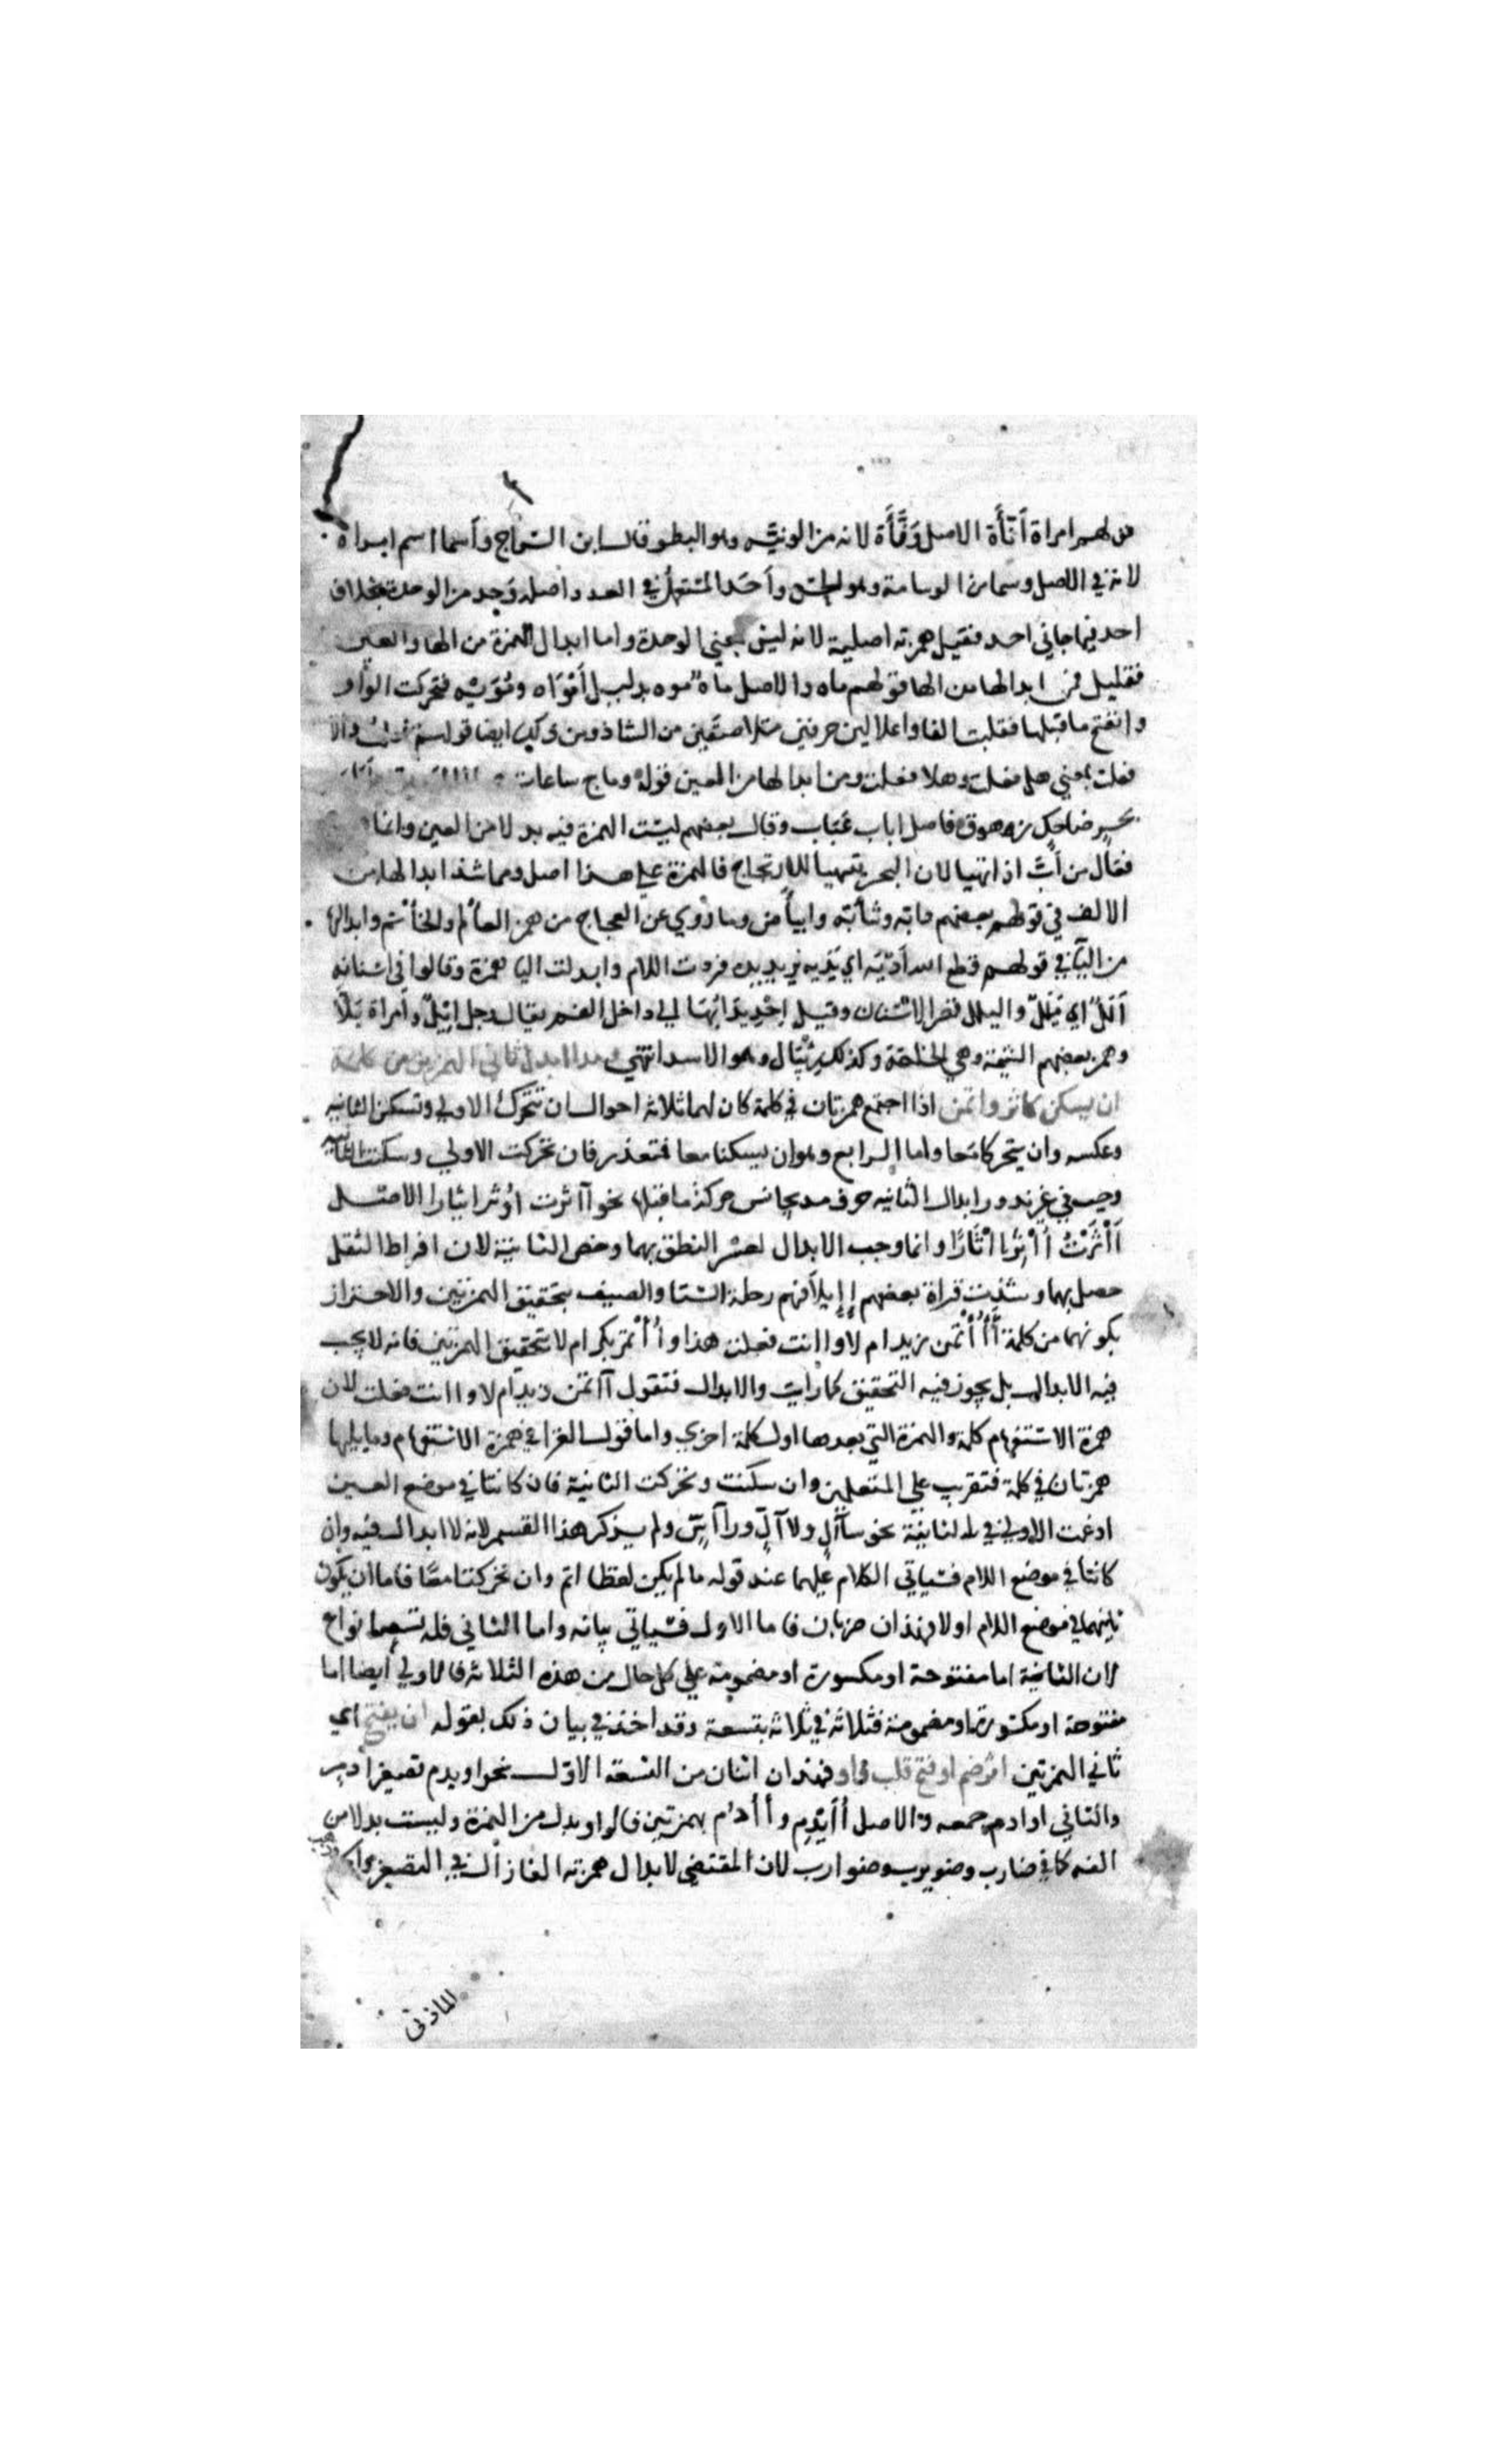 قولهم امراة أَنَّأَة الاصل وَنَّأَة لانه من الونية وهو البطو قال ابن السراج وأسما اسم امراة
لانه في الاصل وسما من الوسامة وهو الحسن وأحد المستعمل في العدد واصله وَحد من الوحدة بخلاف
احد فيما جاني احد فقيل همزته اصلية لانه ليس بمعني الوحدة واما ابدال الهمزة من الها والعين
فقليل فمن ابدالها من الها قولهم ماء والاصل ماه موه بدليل أمْوَاه ومُوَيْه فتحركت الواو
وانفتح ما قبلها فقلبت الفا واعلا لين حرفين متلاصقين من الشاذ ومن ذلك ايضا قولهم
فعلت بمعني هل فعلت وهلا فعلت ومن ابدالها من العين قوله وماج ساعات
بحر ضاحك زهوق فاصل اباب عُبَاب وقال بعضهم ليست الهمزة فيه بدلا من العين وانما
فعال من أَبَّ اذا تهيا لان البحر يتهيا للارتجاج فالهمزة علي هذا اصل ومما شذ ابدالها من
الالف في قولهم بعضهم دابة وشابة وابيأض وما روي عن العجاج من همز العألم والخأتم وابدالها
من اليا في قولهم قطع الله أدَيْه اي يَدَيه يريد يديه فردت اللام وابدلت اليا همزة وقالوا في اسنانه
أَلَلٌ اي يَلَلٌ واليلل قصر الاسنان وقيل احديدابها الي داخل الفم يقال رجل ايلّ وامراة يَلّا
وهمز بعضهم الشيمة وهي الخلقة وكذلك رئبال وهو الاسد انتهي ومدا ابدل ثاني الهمزين من كلمة
ان يسكن كاثر واتمن اذا اجتمع همزتان في كلمة كان لهما ثلاثة احوال ان تتحرك الاولي وتسكن الثانية
وعكسه وان يتحركا معا واما الرابع وهو ان يسكنا معا فمتعذر فان تحركت الاولي وسكنت الثانية
وجب في غير ندور ابدال الثانية حرف مد يجانس حركة ما قبلها نحو آثرت اوُثر ايثارا الاصل
أَأْثَرْتُ أُأْثِرُ إأْثَارًا وانما وجب الابدال لعسر النطق بهما وخص الثانية لان افراط الثقل
حصل بها وشذت قراة بعضهم إإيلافهم رحلة الشتا والصيف بتحقيق الهمزتين والاحتراز
بكونهما من كلمة أَأُأْتمن زيد ام لا واانت فعلت هذا وأُأْتمر بكر ام لا بتحقيق الهمزتين فانه لا يجب
فيه الابدال بل يجوز فيه التحقيق كما رايت والابدال فتقول آاتمن زيد ام لا واانت فعلت لان
همزة الاستفهام كلمة والهمزة التي بعدها اول كلمة اخري واما قول القرا في همزة الاستفهام وما يليها
همزتان في كلمة فتقريب علي المتعلمين وان سكنت وتحركت الثانية فان كانتا في موضع العين
ادغمت الاولي في الثانية نحو سأّال ولأّال ورأّاس ولم يذكر هذا القسم لانه لا ابدال فيه وان
كانتا في موضع اللام فسياتي الكلام عليهما عند قوله ما لم يكن لفظا اتم وان تحركتا معًا فاما ان يكون
ثانيهما في موضع اللام اولا فهذان ضربان فاما الاول فسياتي بيانه واما الثاني فله تسعة انواع
لان الثانية اما مفتوحة او مكسورة او مضمومة علي كل حال من هذه الثلاثة فالاولي ايضا اما
مفتوحة او مكسورة او مضمومة فثلاثة في ثلاثة بتسعة وقد اخذ في بيان ذلك بقوله ان يفتح اي
ثاني الهمزتين اثر ضم او فتح قلب واو فهذان اثنان من التسعة الاول نحو اويدم تصغير ادم
والثاني اوادم جمعه والاصل أُأَيْدِم وأَأَادم بهمزتين فالواو بدل من الهمزة وليست بدلا من
الفه كما في ضارب وضويرب وضوارب لان المقتضي لابدال همزته الفا زال في التصغير والجمع وذهب
المازني